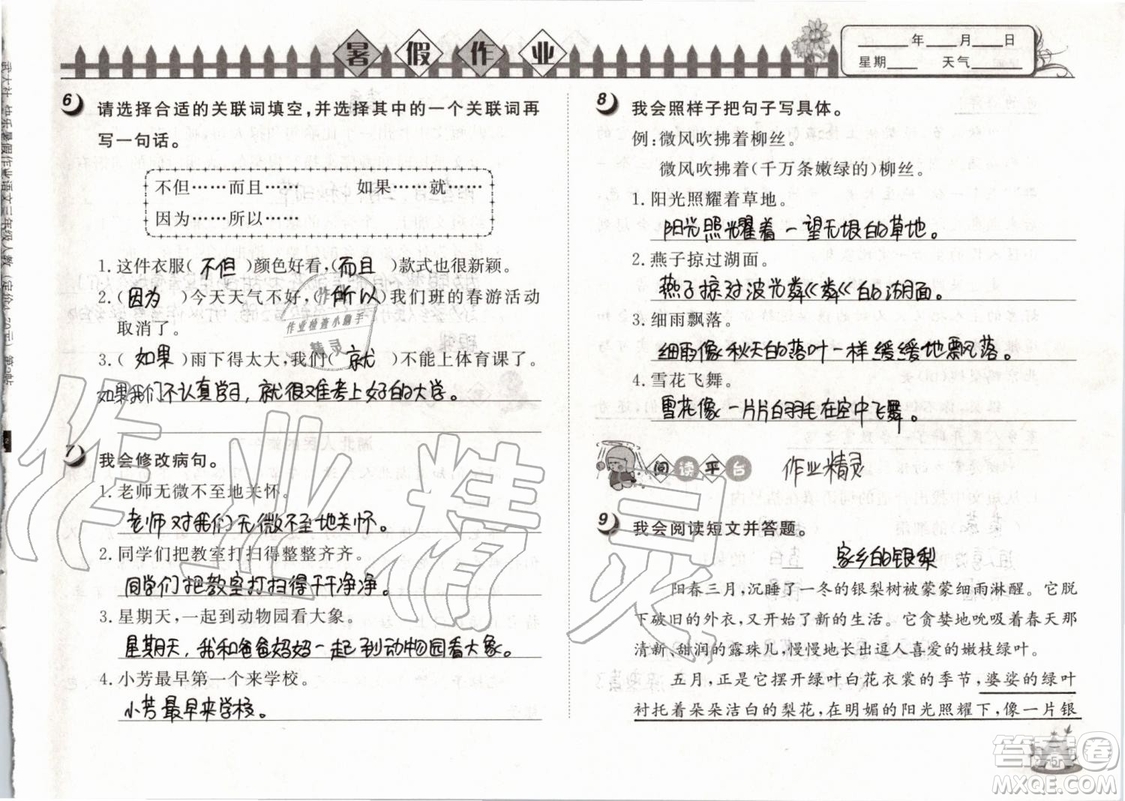 暑假作业
____年____月____日
星期____ 天气____
6 请选择合适的关联词填空,并选择其中的一个关联词再
写一句话。
不但……而且…… 如果……就……
因为……所以……
1.这件衣服(不但)颜色好看,(而且)款式也很新颖。
2.(因为)今天天气不好,(所以)我们班的春游活动
取消了。
3.(如果)雨下得太大,我们(就)不能上体育课了。
如果我们不认真学习,就很难考上好的大学。
7 我会修改病句。
1.老师无微不至地关怀。
老师对我们无微不至地关怀。
2.同学们把教室打扫得整整齐齐。
同学们把教室打扫得干干净净。
3.星期天,一起到动物园看大象。
星期天,我和爸爸妈妈一起到动物园看大象。
4.小芳最早第一个来学校。
小芳最早来学校。
8 我会照样子把句子写具体。
例:微风吹拂着柳丝。
微风吹拂着(千万条嫩绿的)柳丝。
1.阳光照耀着草地。
阳光照耀着一望无垠的草地。
2.燕子掠过湖面。
燕子掠过波光粼粼的湖面。
3.细雨飘落。
细雨像秋天的落叶一样缓缓地飘落。
4.雪花飞舞。
雪花像一片片白羽毛在空中飞舞。
阅读平台
作业精灵
9 我会阅读短文并答题。
家乡的银梨
阳春三月,沉睡了一冬的银梨树被蒙蒙细雨淋醒。它脱
下破旧的外衣,又开始了新的生活。它贪婪地吮吸着春天那
清新、甜润的露珠儿,慢慢地长出逗人喜爱的嫩枝绿叶。
五月,正是它摆开绿叶白花衣裳的季节,婆娑的绿叶
衬托着朵朵洁白的梨花,在明媚的阳光照耀下,像一片银
作业检查小助手
精灵
作业精灵
答案圈
MXQE.COM